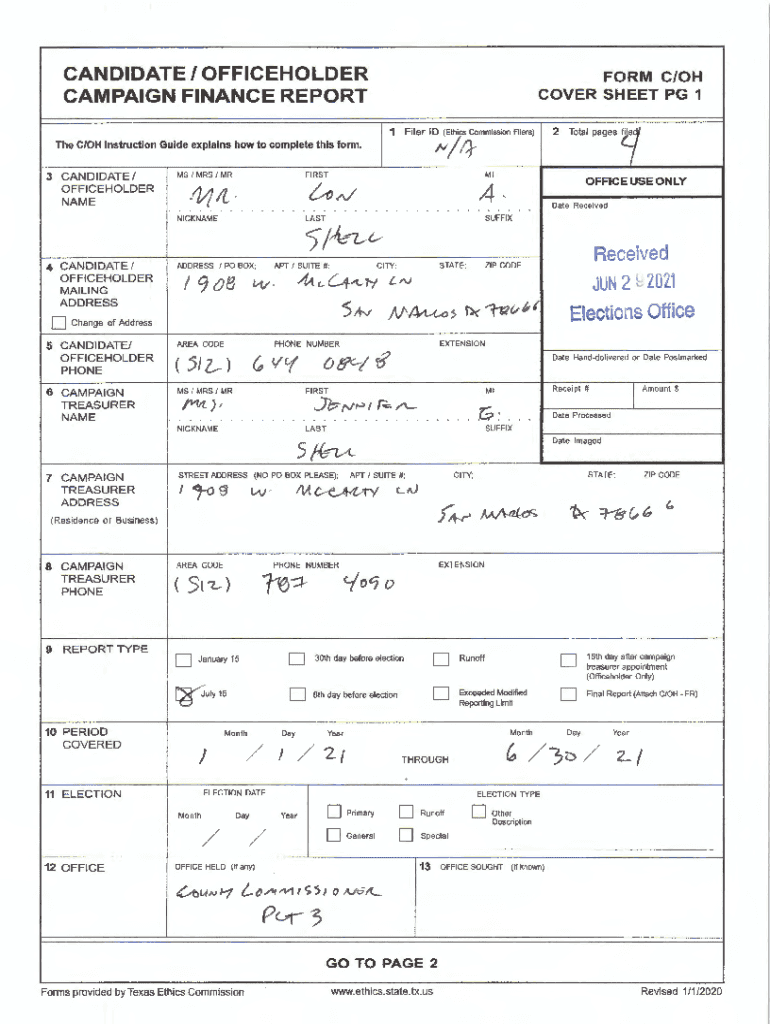 CANDIDATE / OFFICEHOLDER
CAMPAIGN FINANCE REPORT
FORM C/OH
COVER SHEET PG 1
The C/OH Instruction Guide explains how to complete this form.
1 Filer ID (Ethics Commission Filers)
N/A
2 Total pages filed
4
3 CANDIDATE / OFFICEHOLDER NAME
MS / MRS / MR FIRST MI
MR. LON A.
NICKNAME LAST SUFFIX
SHELL
OFFICE USE ONLY
Date Received
Received
JUN 29 2021
Elections Office
4 CANDIDATE / OFFICEHOLDER MAILING ADDRESS
Change of Address
ADDRESS / PO BOX; APT / SUITE #; CITY; STATE; ZIP CODE
1908 W. McCARTY LN
SAN MARCOS TX 78666
5 CANDIDATE/ OFFICEHOLDER PHONE
AREA CODE PHONE NUMBER EXTENSION
(512) 644 0848
Date Hand-delivered or Date Postmarked
6 CAMPAIGN TREASURER NAME
MS / MRS / MR FIRST MI
MRS. JENNIFER G.
NICKNAME LAST SUFFIX
SHELL
Receipt # Amount $
Date Processed
Date Imaged
7 CAMPAIGN TREASURER ADDRESS
(Residence or Business)
STREET ADDRESS (NO PO BOX PLEASE); APT / SUITE #; CITY; STATE; ZIP CODE
1908 W. McCARTY LN
SAN MARCOS TX 78666
8 CAMPAIGN TREASURER PHONE
AREA CODE PHONE NUMBER EXTENSION
(512) 787 4090
9 REPORT TYPE
January 15 30th day before election Runoff 15th day after campaign treasurer appointment (Officeholder Only)
July 15 8th day before election Exceeded Modified Reporting Limit Final Report (Attach C/OH - FR)
10 PERIOD COVERED
Month Day Year Month Day Year
1 / 1 / 21 THROUGH 6 / 30 / 21
11 ELECTION
ELECTION DATE ELECTION TYPE
Month Day Year
/ /
Primary Runoff Other Description
General Special
12 OFFICE
OFFICE HELD (if any)
COUNTY COMMISSIONER
PCT 3
13 OFFICE SOUGHT (if known)
GO TO PAGE 2
Forms provided by Texas Ethics Commission www.ethics.state.tx.us Revised 1/1/2020